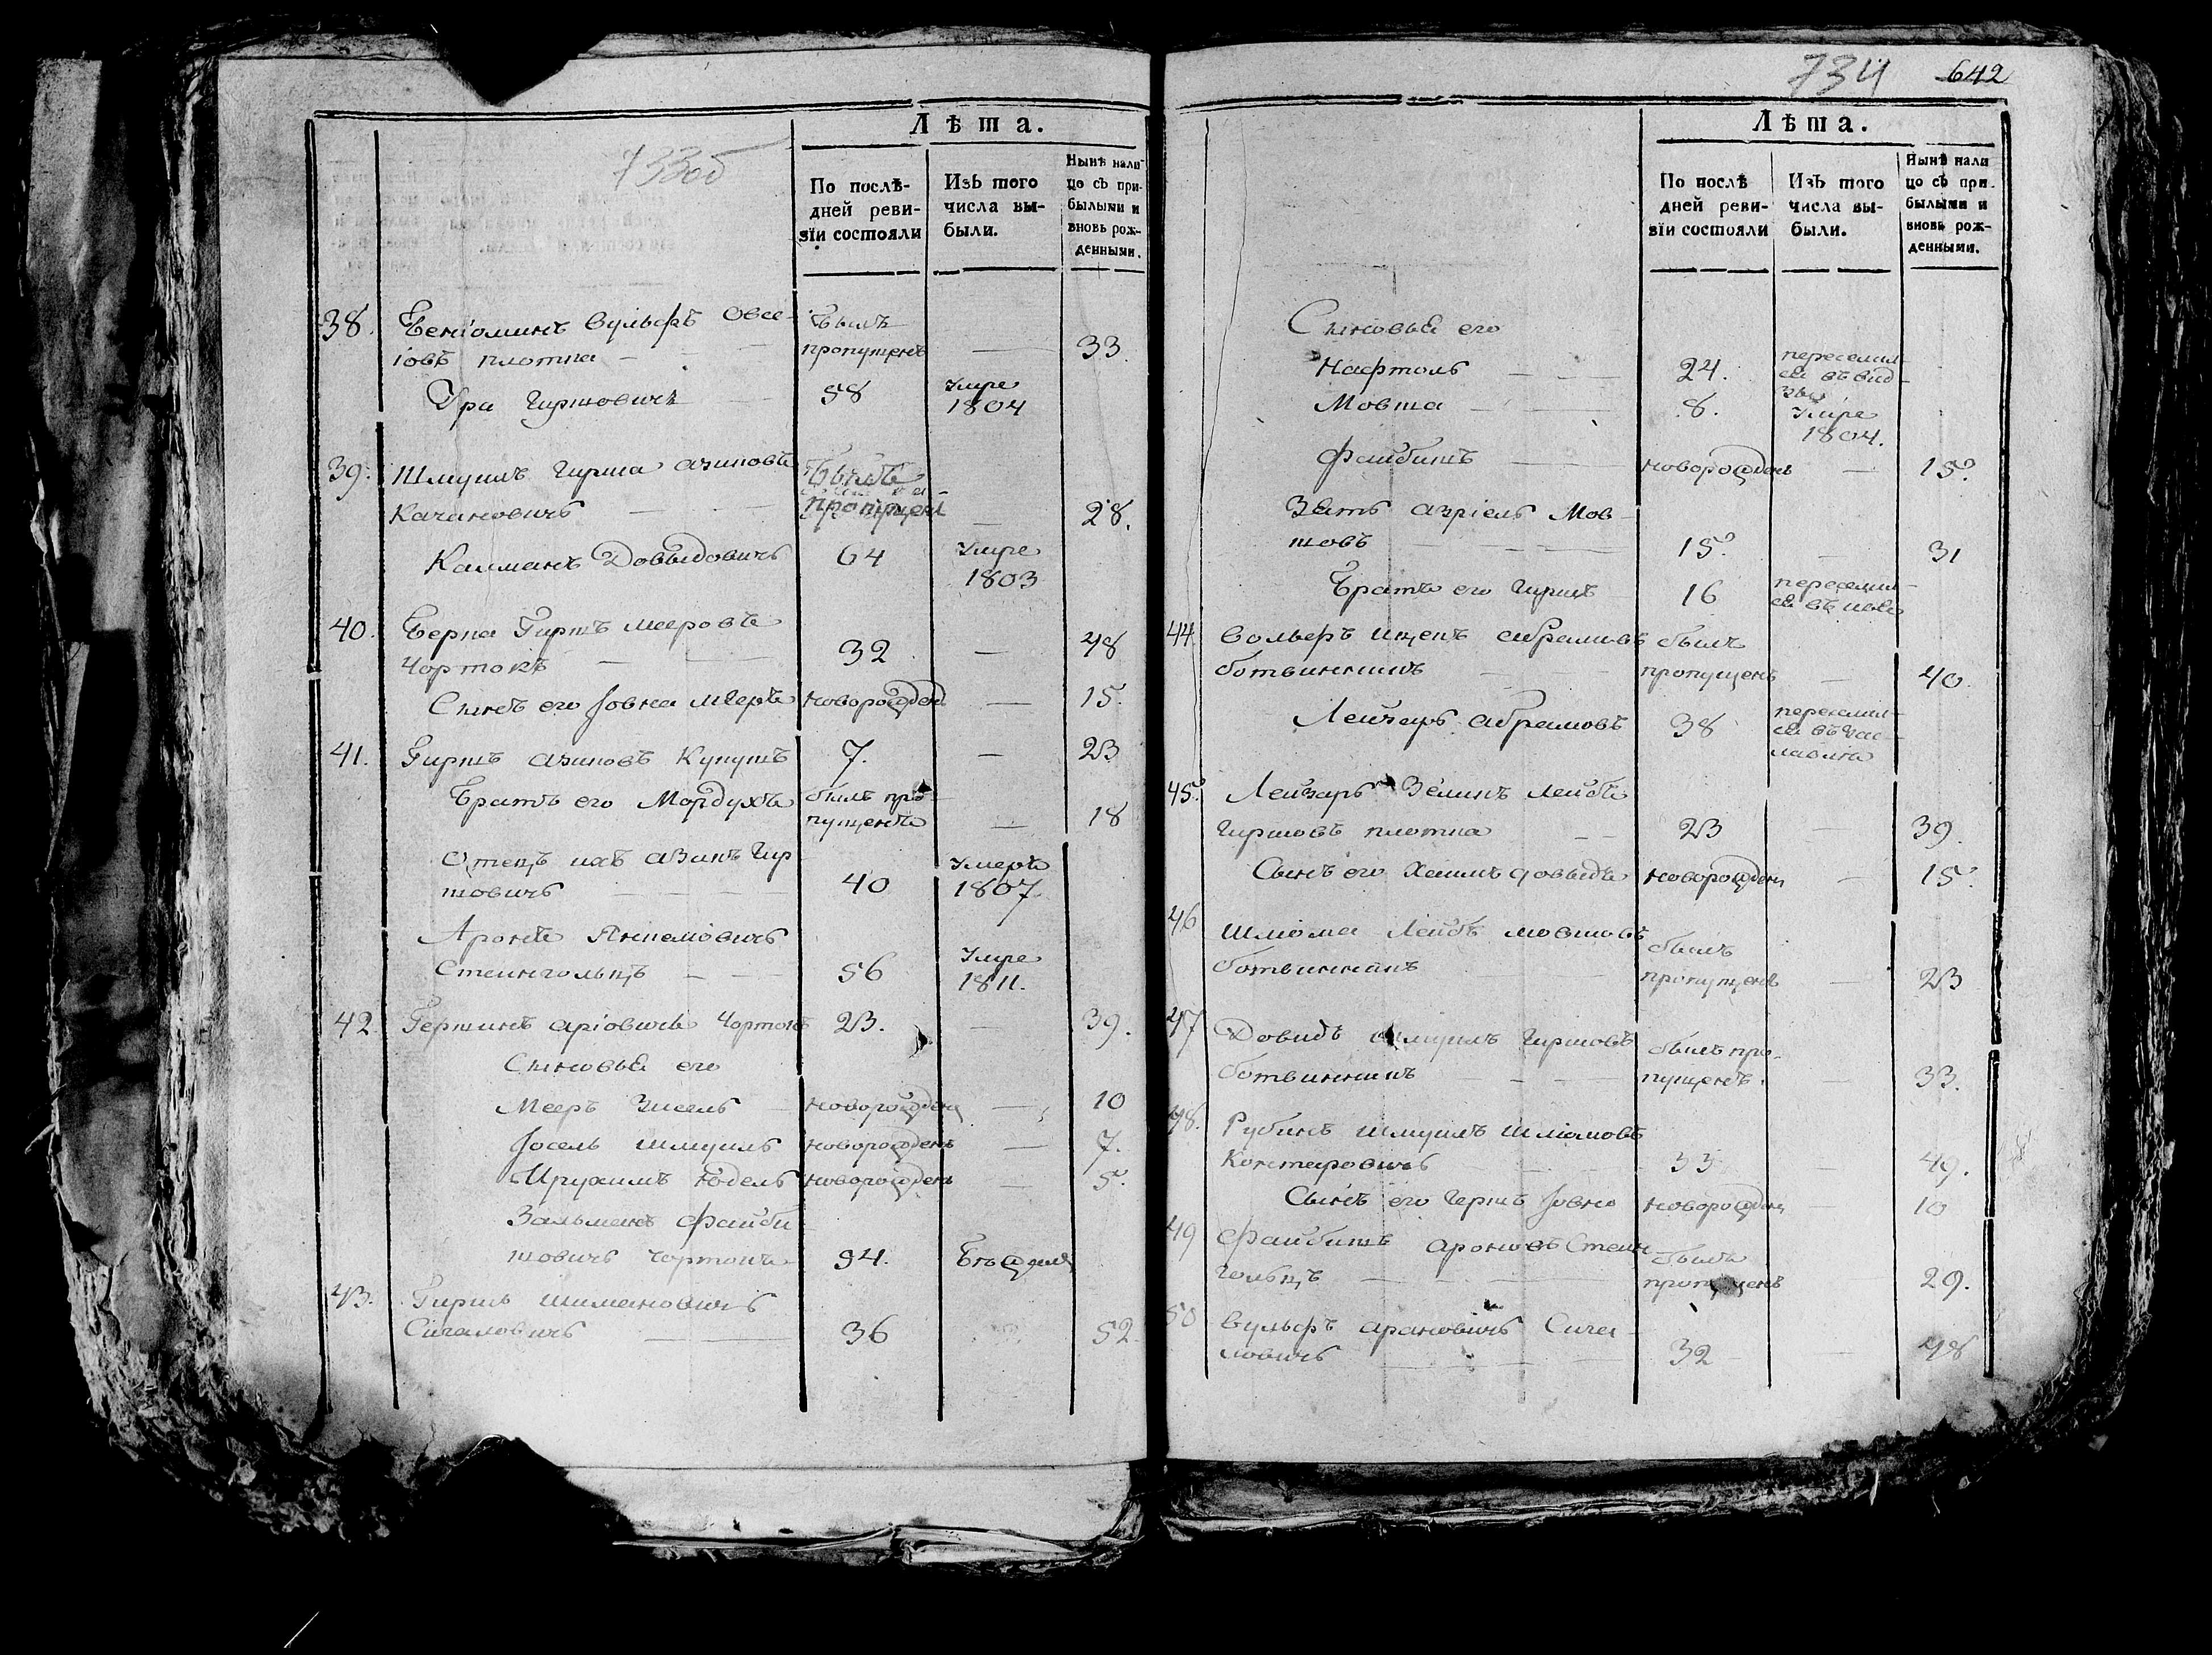 733об
Лѣта.
По послѣ-
дней реви-
зіи состояли
Изъ того
числа вы-
были.
Нынѣ нали-
цо съ при-
былыми и
вновь рож-
денными.
38. Бенiоминъ Вульфъ Овсе- былъ
iовъ плотка — пропущенъ — 33.
Ура Гиршовичъ — 58 Умре
1804
39. Шмуилъ Гирша Азиковъ былъ
Качановичъ — пропущенъ — 28.
Калманъ Довыдовичъ 64 Умре
1803
40. Берка Гиршъ Мееровъ
Чортокъ — 32 — 48
Сынъ его Iовна Мееръ новорожденъ — 15.
41. Гиршъ Азиковъ Купушъ 7. — 23
Братъ его Мордухъ былъ про-
пущенъ — 18
Отецъ ихъ Азикъ Гир
шовичъ — 40 Умеръ
1807
Аронъ
Стеингольцъ — 56 Умре
1811.
42. Гершинъ Арiовичъ Чортокъ 23. — 39.
Сыновья его
Мееръ Зисель новорожденъ — 10
Iосель Шмуилъ новорожденъ — 7.
Ирухимъ Юдель новорожденъ — 5.
Зальменъ Файби
шовичъ Чортокъ 94.
43. Гиршъ Шимановичъ
Сигаловичъ — 36 52.
734 642
Лѣта.
По послѣ
дней реви-
зіи состояли
Изъ того
числа вы-
были.
Нынѣ нали
цо съ при-
былыми и
вновь рож-
денными.
Сыновья его
Нафтоль — 24. переселил-
ся въ Вид-
зы
Мовша — 8. Умре
1804.
Файбишъ — новорожденъ — 15.
Зять Азрiель Мов-
шовъ — 15. — 31
Братъ его Гиршъ 16 переселил-
ся въ
44. Вольфъ Ицекъ Абрамовъ былъ
Ботвинникъ — пропущенъ — 40.
Лейзеръ Абрамовъ 38 переселил-
ся въ
45. Лейзаръ Зелинъ Лейбъ
Гиршовъ плотка — 23 — 39.
Сынъ его Хаимъ Довыдъ новорожденъ — 15.
46 Шлюма Лейбъ Мовшовъ былъ
Ботвинникъ — пропущенъ — 23
47 Довидъ Шмуилъ Гиршовъ былъ про-
Ботвинникъ — пущенъ. — 33.
48. Рубинъ Шмуилъ Шлiомовъ
33 49.
Сынъ его Гершъ Iовно новорожденъ — 10
49 Файбишъ Ароновъ Стеин былъ
гольцъ — пропущенъ 29.
50 Вульфъ Арановичъ Сига-
ловичъ — 32 — 48